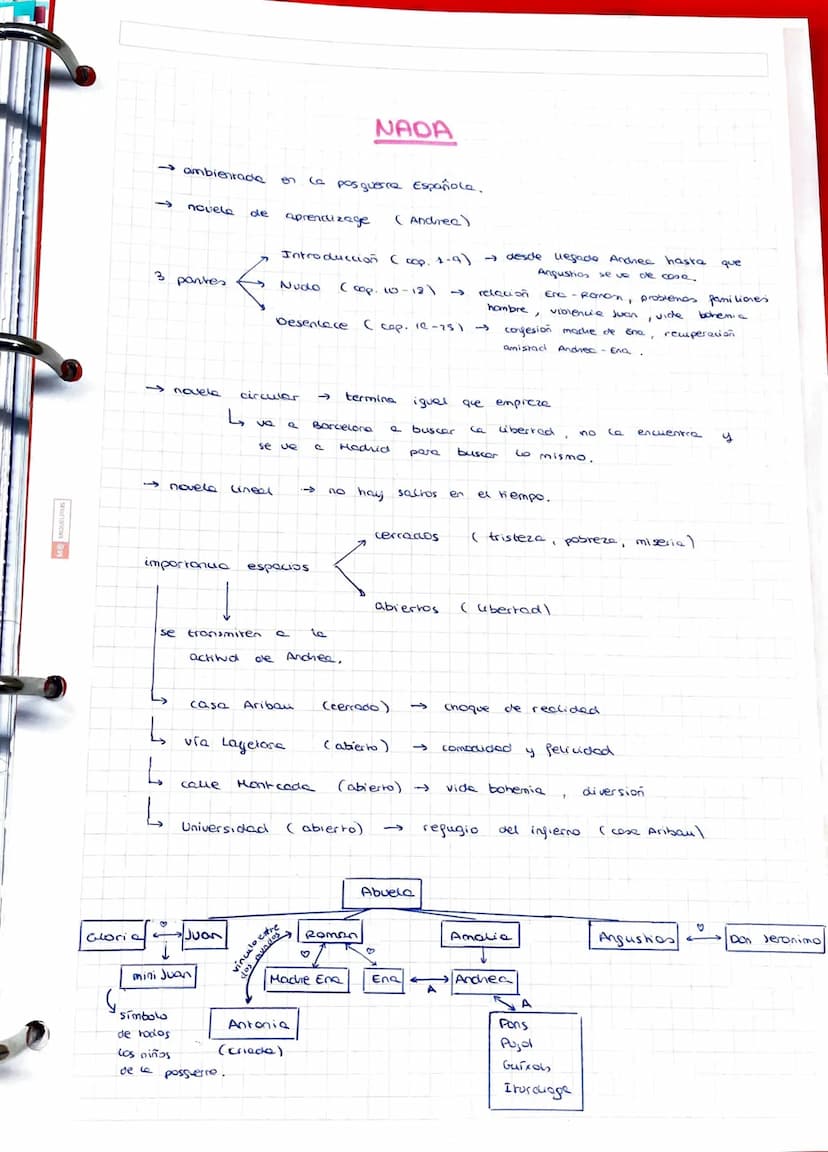 NADA
→ ambientada en la posguerra Española.
→ novela de aprendizage (Andrea)
3 partes
Introducción (cap. 1-9) → desde llegada Andrea hasta que
Angustias se va de casa.
Nudo (cap. 10-18) → relación Ena-Román, problemas familiares
hambre, violencia Juan, vida bohemia
Desenlace (cap. 18-25) → confesión madre de Ena, recuperación
amistad Andrea-Ena.
→ novela circular → termina igual que empieza
↳ va a Barcelona a buscar la libertad, no la encuentra y
se va a Madrid para buscar lo mismo.
→ novela lineal → no hay saltos en el tiempo.
importancia espacios
cerrados (tristeza, pobreza, miseria)
abiertos (libertad)
se transmiten a la
actitud de Andrea.
↳ casa Aribau (cerrado) → choque de realidad
↳ vía Layetana (abierto) → comodidad y felicidad
↳ calle Montcada (abierto) → vida bohemia, diversión
↳ Universidad (abierto) → refugio del infierno (casa Aribau)
Abuela
Gloria ♡ ↔ Juan
Roman
Amalia
Angustias ♡ ↔ Don Jeronimo
vínculo entre
los
mini Juan
♡ Madre Ena
♡ Ena ↔ A Andrea
A
símbolo
de todos
los niños
de la posguerra.
Antonia
(criada)
Pons
Pujol
Guíxols
Iturdiaga